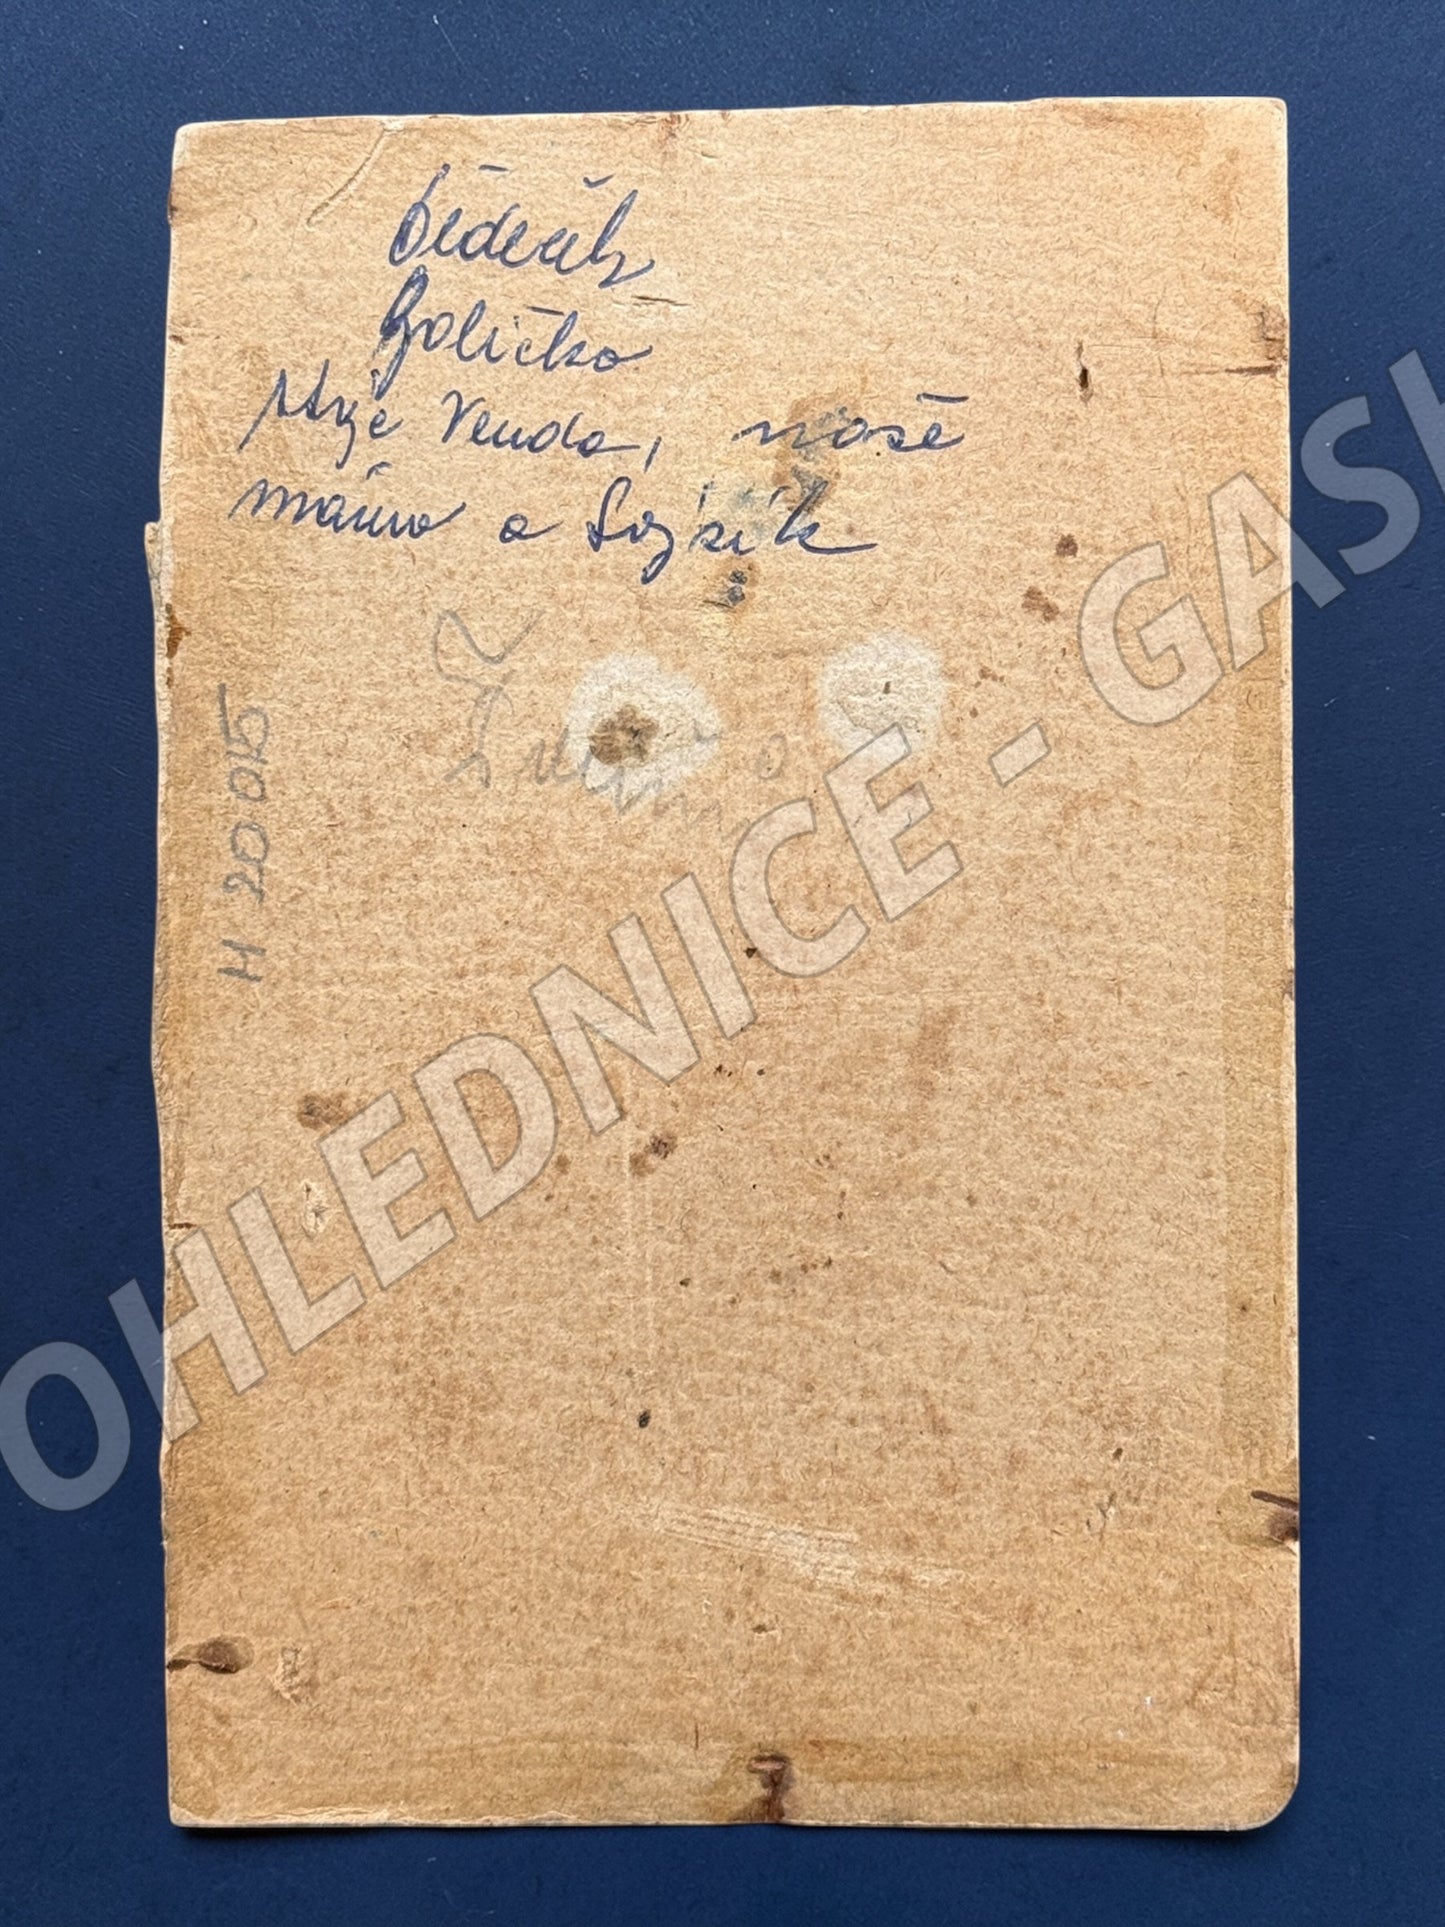 Dědeček
Holičko
strýc Venda, naše
máma a Lojzík
H 20 015
OHLEDNICE - GASH